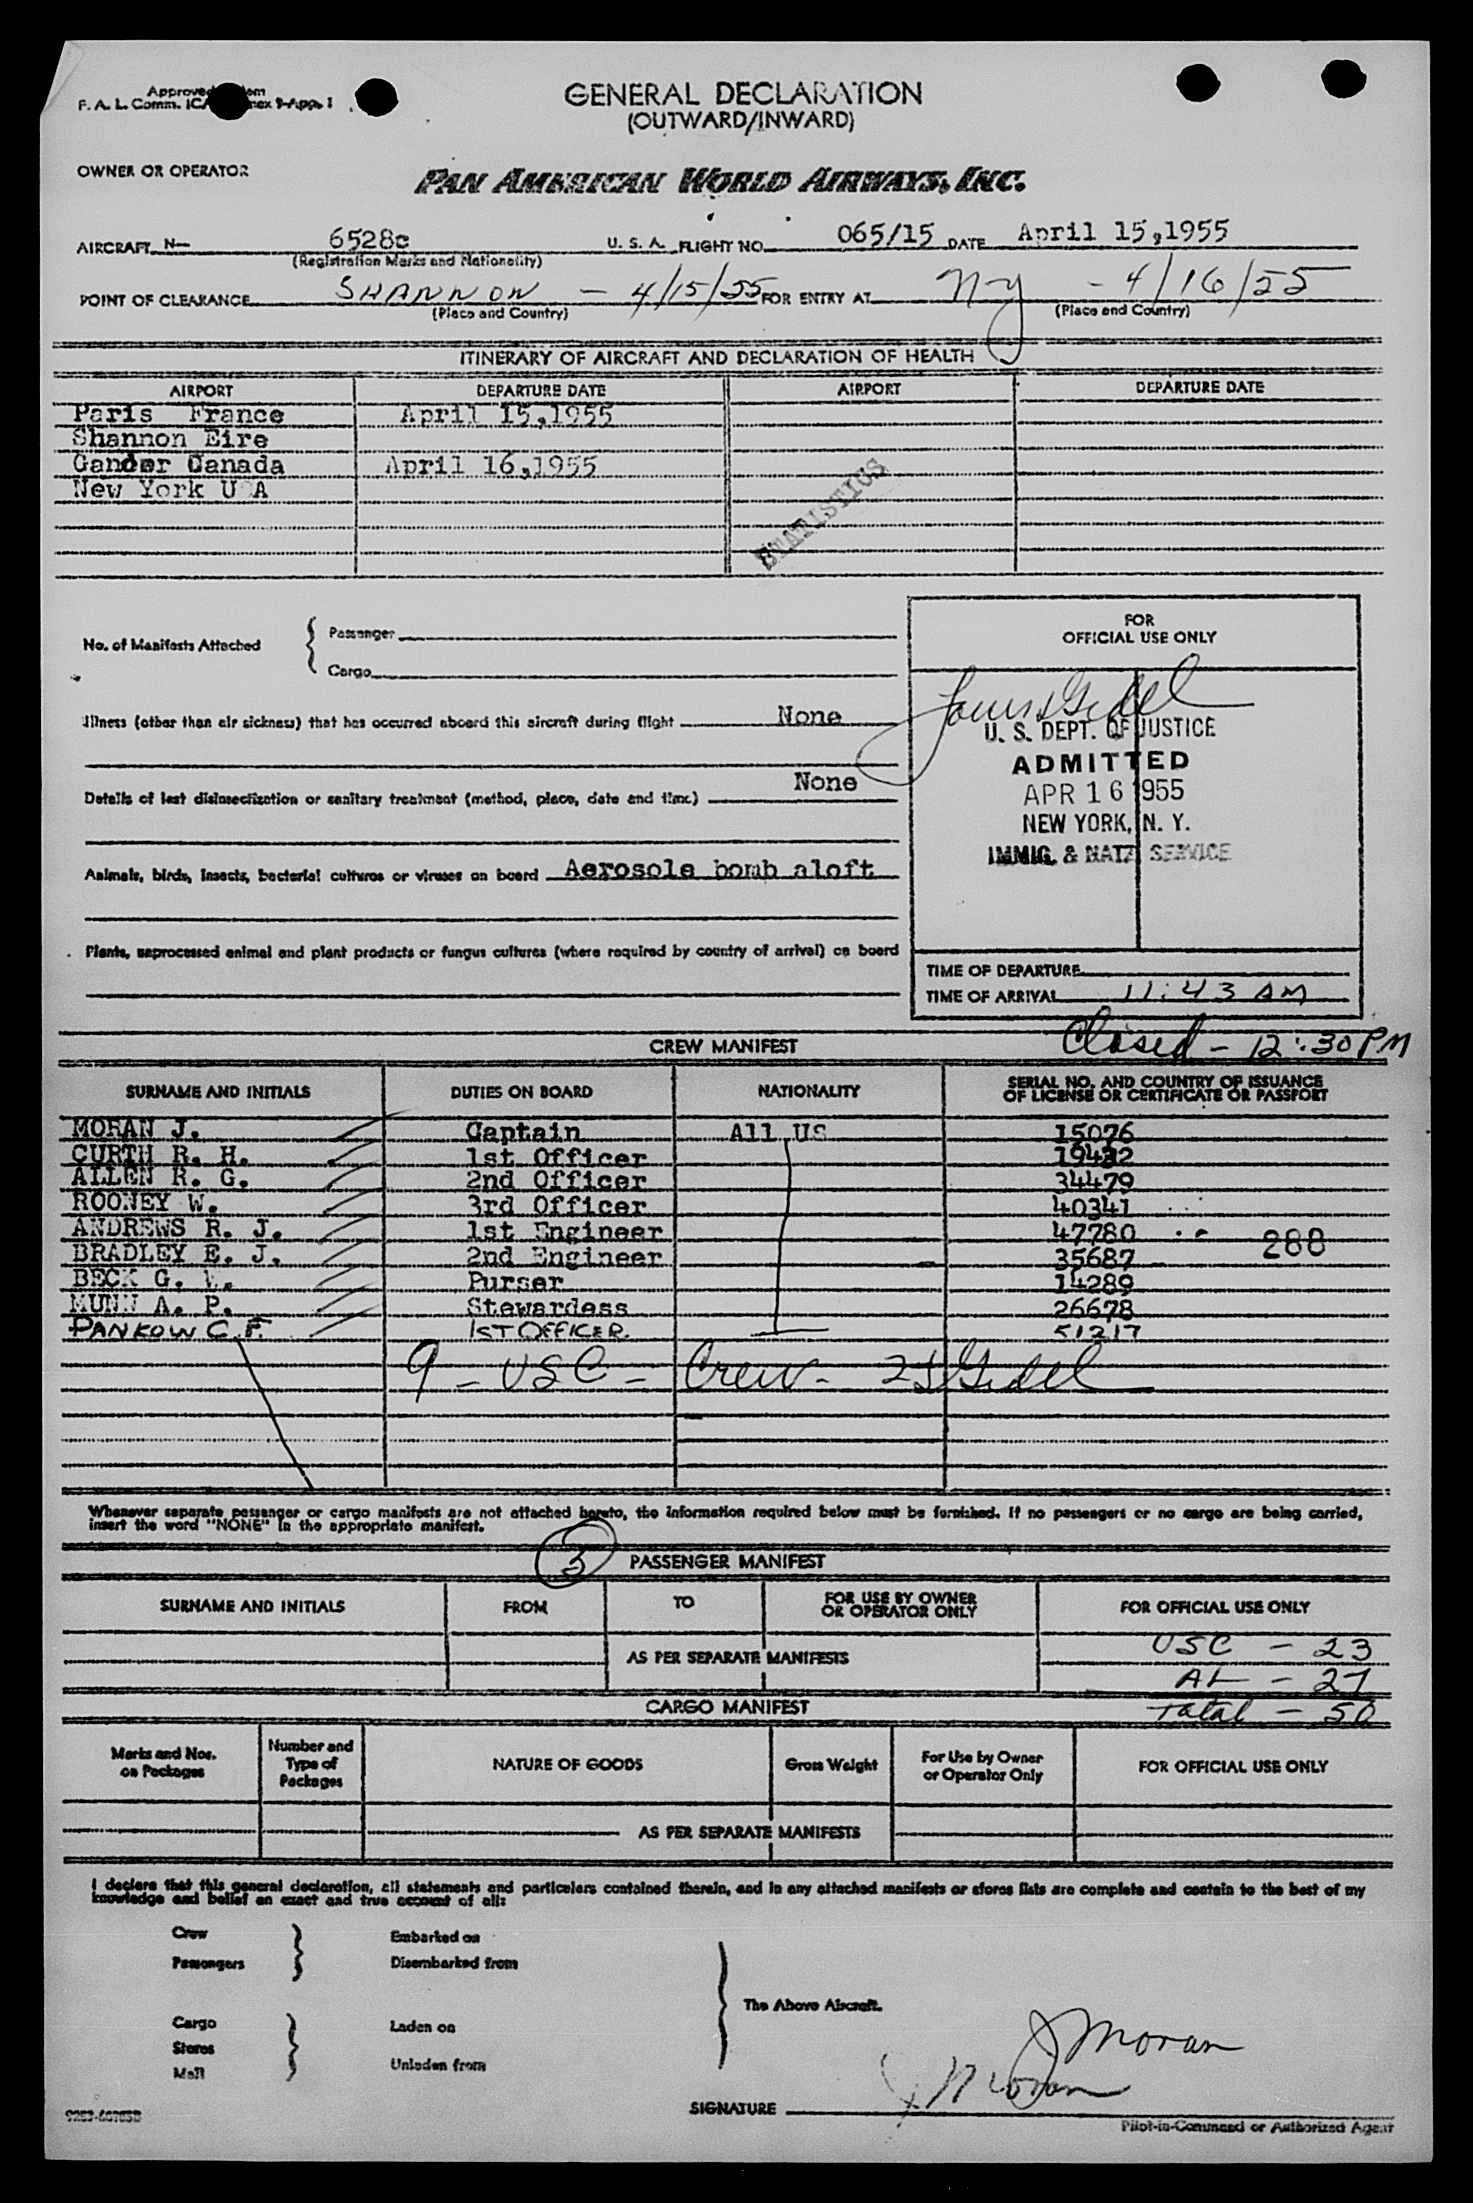 GENERAL DECLARATION
(OUTWARD/INWARD)
Approved
F. A. L. Comm. 9-App. 1
OWNER OR OPERATOR
PAN AMERICAN WORLD AIRWAYS, INC.
AIRCRAFT N— 6528c U. S. A. FLIGHT NO. 065/15 DATE April 15,1955
(Registration Marks and Nationality)
POINT OF CLEARANCE SHANNON - 4/15/55 FOR ENTRY AT NY - 4/16/55
(Place and Country) (Place and Country)
ITINERARY OF AIRCRAFT AND DECLARATION OF HEALTH
AIRPORT DEPARTURE DATE AIRPORT DEPARTURE DATE
Paris France April 15,1955
Shannon Eire
Gander Canada April 16,1955
New York U A
STATISTICS
FOR
OFFICIAL USE ONLY
No. of Manifests Attached { Passenger
Cargo
Illness (other than air sickness) that has occurred aboard this aircraft during flight None
Details of last disinsectization or sanitary treatment (method, place, date and time) None
Animals, birds, insects, bacterial cultures or viruses on board Aerosole bomb aloft
Plants, unprocessed animal and plant products or fungus cultures (where required by country of arrival) on board
U. S. DEPT. OF JUSTICE
ADMITTED
APR 16 1955
NEW YORK, N. Y.
IMMIG. & NATZ SERVICE
TIME OF DEPARTURE
TIME OF ARRIVAL 11:43 AM
Closed - 12:30 PM
CREW MANIFEST
SURNAME AND INITIALS DUTIES ON BOARD NATIONALITY SERIAL NO. AND COUNTRY OF ISSUANCE
OF LICENSE OR CERTIFICATE OR PASSPORT
MORAN J. Captain All US 15076
CURTH R. H. 1st Officer 19432
ALLEN R. G. 2nd Officer 34479
ROONEY W. 3rd Officer 40341
ANDREWS R. J. 1st Engineer 47780
BRADLEY E. J. 2nd Engineer 35687 288
BECK G. W. Purser 14289
MUNN A. P. Stewardess 26678
PANKOW C. F. 1ST OFFICER 51217
9 - USC - Crew - Gidel
Whenever separate passenger or cargo manifests are not attached hereto, the information required below must be furnished. If no passengers or no cargo are being carried,
insert the word "NONE" in the appropriate manifest.
3 PASSENGER MANIFEST
SURNAME AND INITIALS FROM TO FOR USE BY OWNER
OR OPERATOR ONLY FOR OFFICIAL USE ONLY
AS PER SEPARATE MANIFESTS
USC - 23
AL - 27
Total - 50
CARGO MANIFEST
Marks and Nos.
on Packages Number and
Type of
Packages NATURE OF GOODS Gross Weight For Use by Owner
or Operator Only FOR OFFICIAL USE ONLY
AS PER SEPARATE MANIFESTS
I declare that this general declaration, all statements and particulars contained therein, and in any attached manifests or stores lists are complete and contain to the best of my
knowledge and belief an exact and true account of all:
Crew Embarked on
Passengers Disembarked from
The Above Aircraft.
Cargo Laden on
Stores
Mail Unladen from
J Moran
J Moran
SIGNATURE
Pilot-in-Command or Authorized Agent